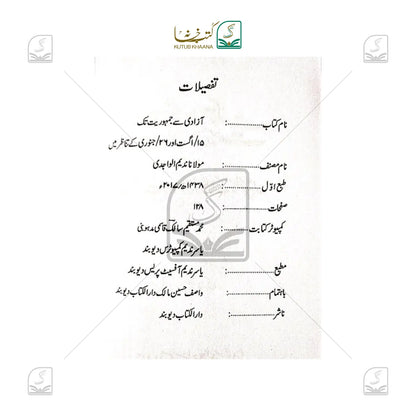 کتب خانہ
KUTUB KHAANA
تفصیلات
نام کتاب ....................: آزادی سے جمہوریت تک
۱۵/ اگست اور ۲۶/ جنوری کے تناظر میں
نام مصنف ....................: مولانا ندیم الواجدی
طبع اوّل ....................: ۱۴۳۸ھ/۲۰۱۷ء
صفحات ....................: ۱۲۸
کمپیوٹر کتابت ....................: محمد مستقیم سالک قاسمی مدہوبنی
یاسر ندیم کمپیوٹرس دیوبند
مطبع ....................: یاسر ندیم آفسیٹ پریس دیوبند
باہتمام ....................: واصف حسین مالک دارالکتاب دیوبند
ناشر ....................: دارالکتاب دیوبند